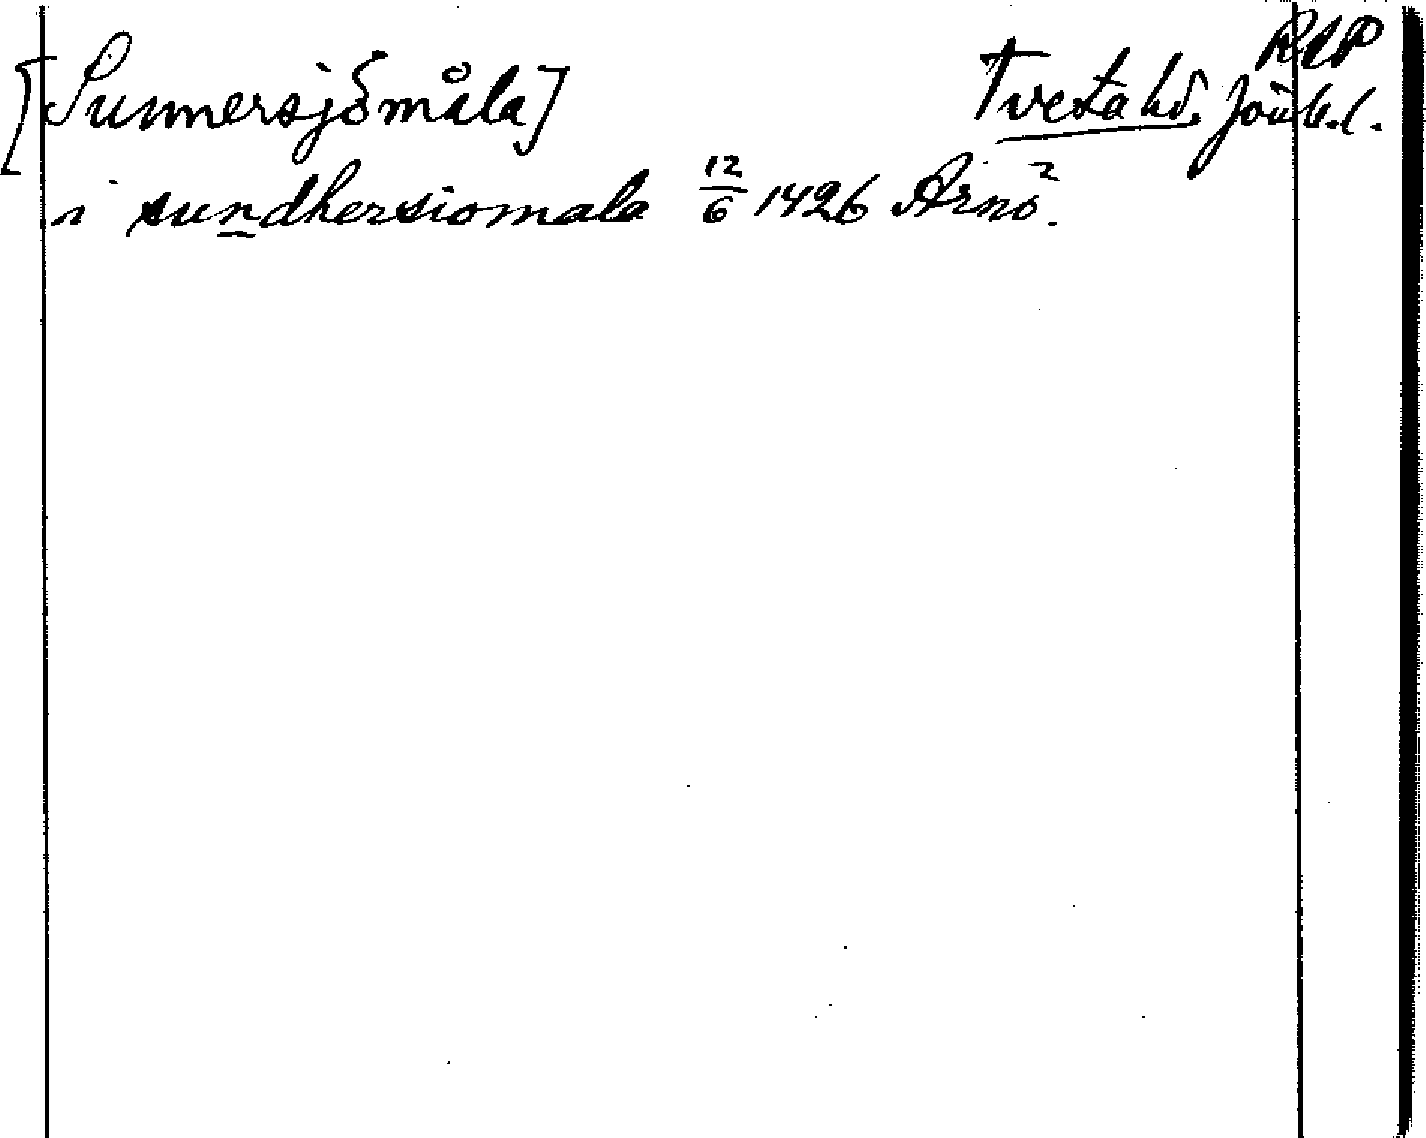 RAP
[Sunnersjömåla] Tveta hd. Jönk.l.
i sundhersiomala 12/6 1426 Arnö².